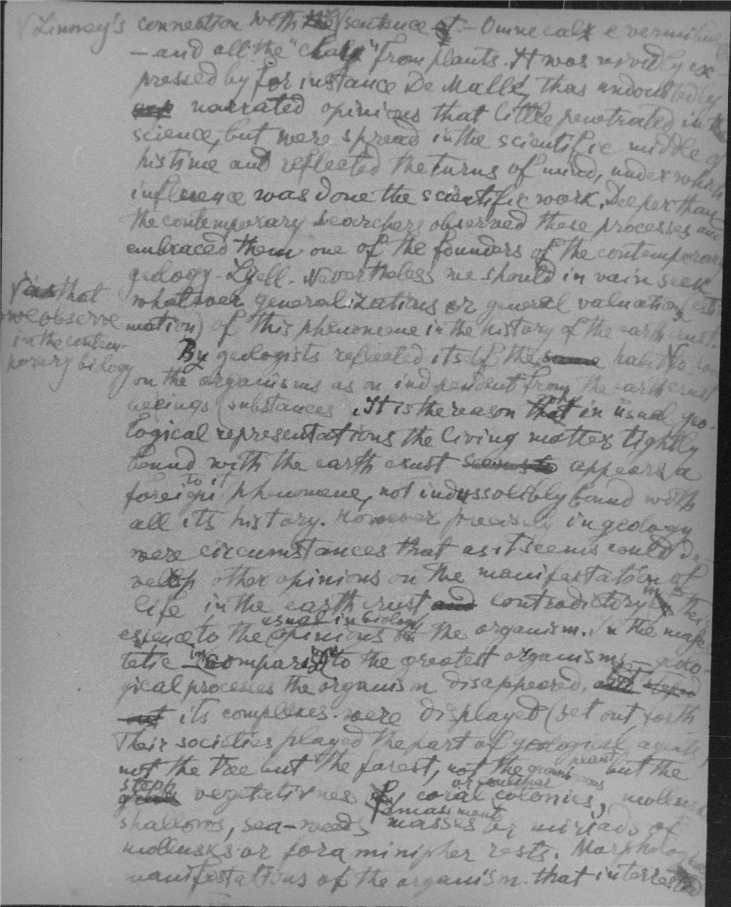 Linney's connection with the sentence of - Omne calx e vermibus
- and all the "chalk" from plants. It was vividly ex-
pressed by for instance De Mallé, thas undoubtedly
narrated opinions that little penetrated in the
science, but were spread in the scientific middle of
his time and reflected the turns of mind, under which
influence was done the scientific work. Deeper than
the contemporary searchers observed those processes and
embraced them one of the founders of the contemporary
geology - Lyell. Nevertheless we should in vain seek
whatever generalizations or general valuation, esti-
mation) of this phenomene in the history of the earth crust.
than that
we observe
in the contem-
porary bilogy
By geologists reflected itself the same habit to look
on the organisms as on independent from the earth crust
beeings (substances). It is the reason that in usual geo-
logical representations the living matter tightly
bound with the earth crust seems to appears a
foreign to it phenomene, not indussolibly bound with
all its history. However precisely in geology
were circumstances that as it seems could de-
velop other opinions on the manifestation of
life in the earth crust and contradictory in their
essence to the opinions usual in biology on the organism. In the maje-
tatic in comparison to the greatest organisms - geolo-
gical processes the organism disappeared,
its complexes were displayed (set out forth
Their societies played the part of geological agents,
not the tree but the forest, not the gramineous plant but the
steph vegetativnes, coral colonies, mollusc
or peculiar
shallows, sea-weeds masses or miriads of
mollusks or foraminipher rests. Morphological
manifestations of the organism that interested